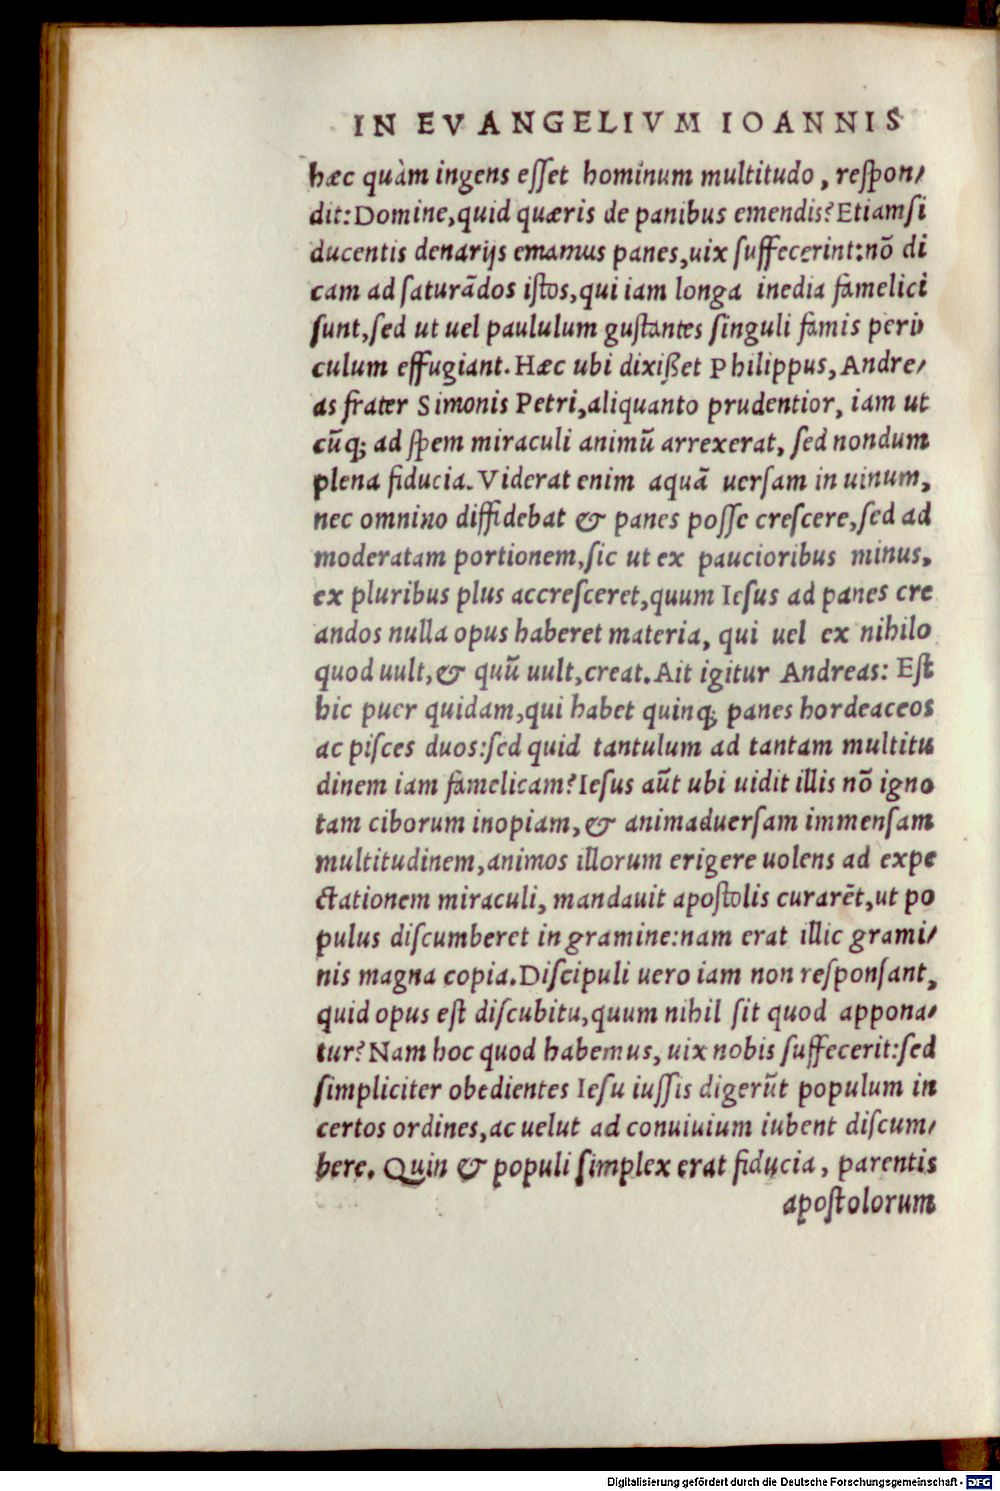 IN EVANGELIVM IOANNIS
hæc quàm ingens esſet hominum multitudo, reſpon/
dit: Domine, quid quæris de panibus emendis? Etiamſi
ducentis denarijs emamus panes, uix ſuffecerint: nõ di
cam ad ſaturãdos iſtos, qui iam longa inedia famelici
ſunt, ſed ut uel paululum guſtantes ſinguli famis peri
culum effugiant. Hæc ubi dixißet Philippus, Andre/
as frater Simonis Petri, aliquanto prudentior, iam ut
cũq; ad ſpem miraculi animũ arrexerat, ſed nondum
plena fiducia. Viderat enim aquã uerſam in uinum,
nec omnino diffidebat & panes poſſe creſcere, ſed ad
moderatam portionem, ſic ut ex paucioribus minus,
ex pluribus plus accreſceret, quum Ieſus ad panes cre
andos nulla opus haberet materia, qui uel ex nihilo
quod uult, & quũ uult, creat. Ait igitur Andreas: Eſt
hic puer quidam, qui habet quinq; panes hordeaceos
ac piſces duos: ſed quid tantulum ad tantam multitu
dinem iam famelicam? Ieſus aũt ubi uidit illis nõ igno
tam ciborum inopiam, & animaduerſam immenſam
multitudinem, animos illorum erigere uolens ad expe
ctationem miraculi, mandauit apoſtolis curarẽt, ut po
pulus diſcumberet in gramine: nam erat illic grami/
nis magna copia. Diſcipuli uero iam non reſponſant,
quid opus eſt diſcubitu, quum nihil ſit quod appona/
tur? Nam hoc quod habemus, uix nobis ſuffecerit: ſed
ſimpliciter obedientes Ieſu iuſſis digerũt populum in
certos ordines, ac uelut ad conuiuium iubent diſcum/
bere. Quin & populi ſimplex erat fiducia, parentis
apoſtolorum
Digitalisierung gefördert durch die Deutsche Forschungsgemeinschaft - DFG